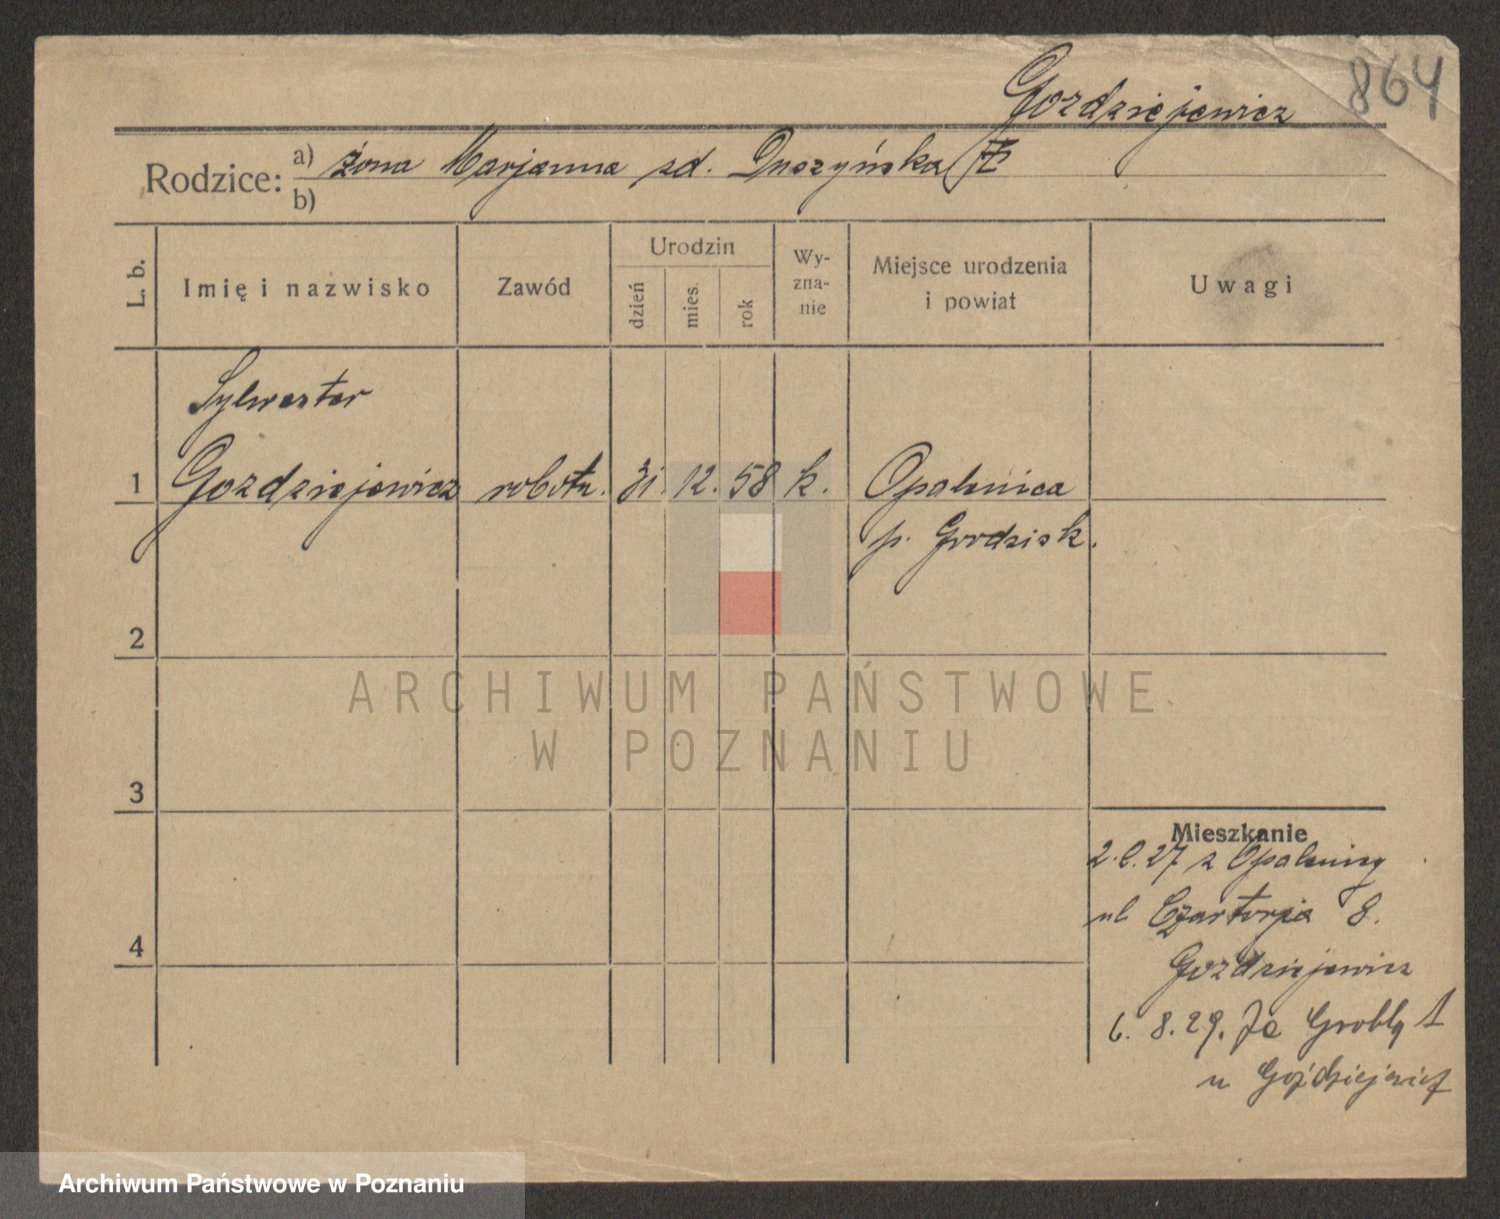 Gozdziejewicz
864
Rodzice: a) żona Marjanna zd. Duszyńska
b)
L. b.
Imię i nazwisko
Zawód
Urodzin
dzień
mies.
rok
Wy-
zna-
nie
Miejsce urodzenia
i powiat
Uwagi
Sylwester
1 Gozdziejewicz robotn. 31. 12. 58 k. Opalenica
p. Grodzisk.
2
3
4
Mieszkanie
27 z Opalenicy
ul Czartorja 8.
Gozdziejewicz
6. 8. 29. Za Groblą 1
u Goździejewicz
ARCHIWUM PAŃSTWOWE
W POZNANIU
Archiwum Państwowe w Poznaniu